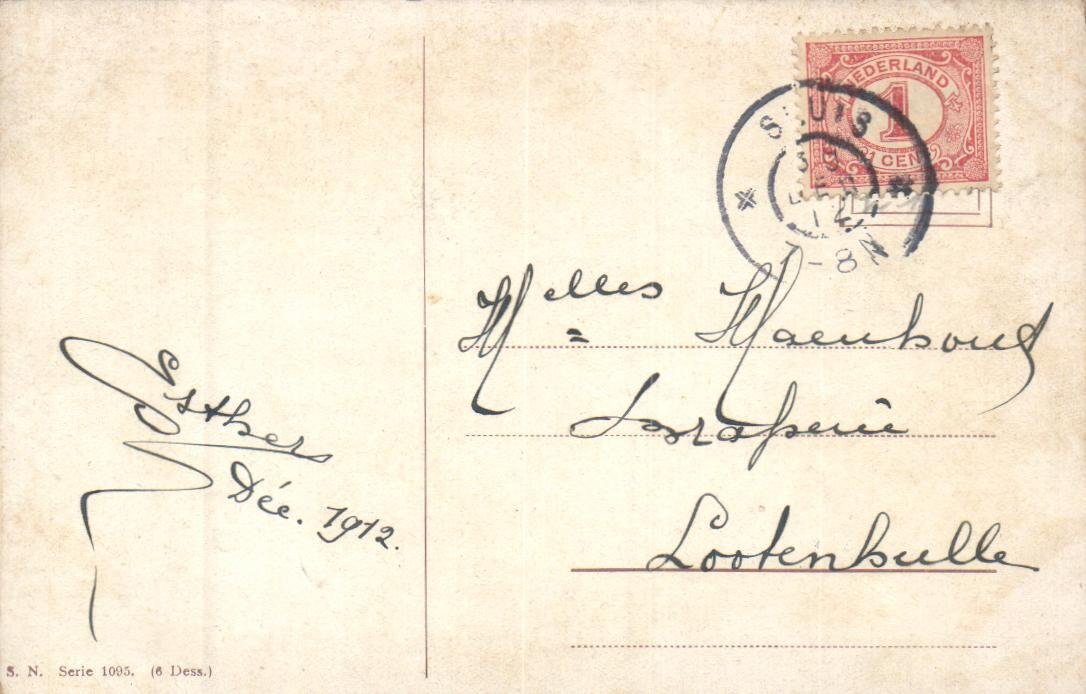 NEDERLAND
1
1 CENT
SLUIS
DEC
12
-8N
Melles Maenhout
Draperie
Lootenhulle
Esther
Déc. 1912.
S. N. Serie 1095. (6 Dess.)